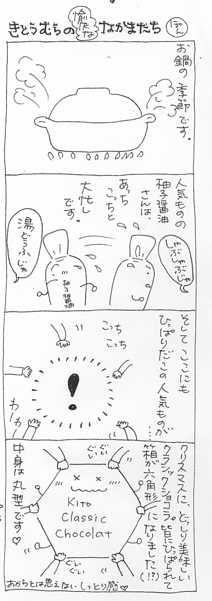 きとうむらの愉快ななかまたち
お鍋の
季節です。
人気ものの
柚子醤油
さんは、
あっち
こっちと
大忙し
です。
しゃぶしゃぶじゃ
湯どうふじゃ
柚子醤油
そして ここにも
ひっぱりだこの人気ものが…
こっち
こっち
!
わーわー
クリスマスに とびっきり美味しい
クラシックショコラ。皆にひっぱられて
箱が六角形になりました(!?)
ぐいぐい
ぐいぐい
Kito
Classic
Chocolat
ぐいぐい
中身は丸型です♡
おからとは思えないしっとり感♡